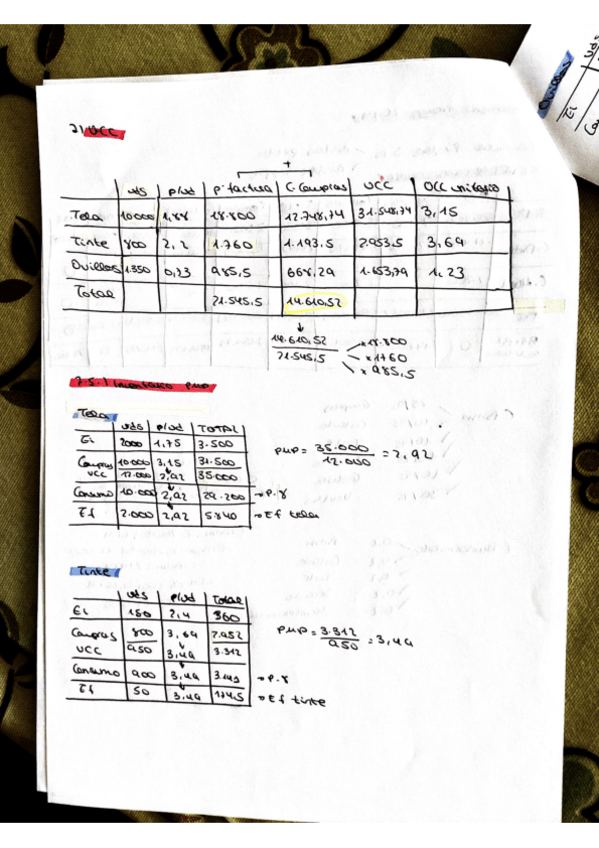 7) UCC
+
uds p/ud p. factura G. Compras UCC UCC unitario
Tela 10000 1,88 18.800 12.748,74 31.548,74 3,15
Tinte 800 2,2 1.760 1.193,5 2.953,5 3,69
Ovillos 1.350 0,73 985,5 668,29 1.653,79 1,23
Total 21.545,5 14.610,52
14.610,52 / 21.545,5
x 18.800
x 1760
x 985,5
7.5.1 Inventario PMP
Tela
uds p/ud TOTAL
Ei 2000 1,75 3.500
Compras 10.000 3,15 31.500
UCC 12.000 2,92 35.000
Consumo 10.000 2,92 29.200 → P.8
Ef 2.000 2,92 5.840 → Ef tela
PMP = 35.000 / 12.000 = 2,92
Tinte
uds p/ud Total
Ei 150 2,4 360
Compras 800 3,69 2.952
UCC 950 3,49 3.312
Consumo 900 3,49 3.141 → P.8
Ef 50 3,49 174,5 → Ef tinte
PMP = 3.312 / 950 = 3,49
Ovillos
uds
Ei